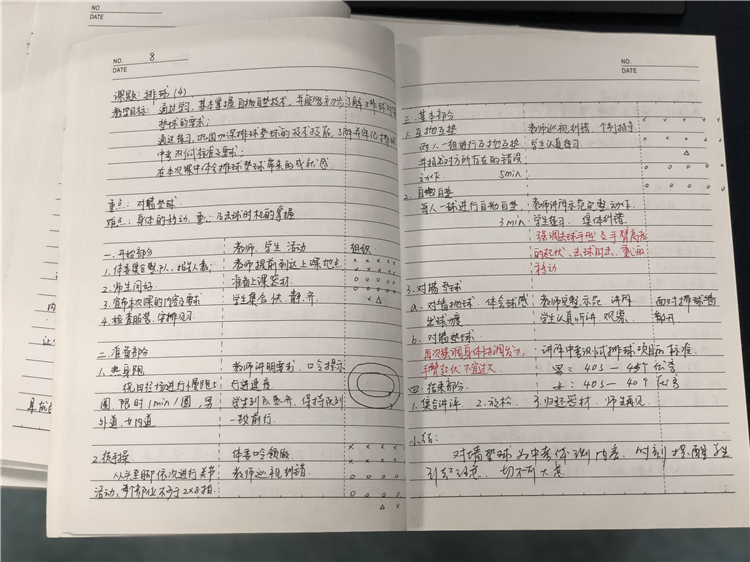 NO. 8
DATE
课题: 排球 (4)
教学目标: 通过学习, 基本掌握自抛自垫技术, 并能
垫球的要求;
通过练习, 巩固
中考测试标准及要求;
在本次课中体会排球垫球带来的成就感
重点: 对墙垫球
难点: 身体的移动、重心及击球时机的掌握
一. 开始部分 教师、学生活动 组织
1. 体委集合整队, 报告人数; 教师提前到达上课地点
2. 师生问好 准备上课器材
3. 宣布本次课的内容及要求 学生集合快、静、齐
4. 检查服装、安排见习
二. 准备部分
1. 热身跑 教师讲明要求、口令提示
绕田径场进行慢跑2 行进速度
圈 限时1min/圈, 男 学生 保持队列
外道, 女内道 一致前行
2. 徒手操 体委口令领做
从头至脚依次进行关节 教师巡视纠错
活动, 每个部位不少于2×8拍
NO.
DATE
三. 基本部分
1. 互抛互垫 教师巡视纠错、个别指导
两人一组进行互抛互垫 学生认真练习
并指出对方所存在的错误
动作 5min
2. 自抛自垫
每人一球进行自抛自垫 教师讲解示范完整动作
3min 学生练习、集体纠错
强调击球手型及手臂高度
的起伏、击球时机、重心的
移动
3. 对墙垫球
a. 对墙抛球、体会球感 教师完整示范、讲解 面对排球墙
出球力度 学生认真听讲、观察 散开
b. 对墙垫球
再次强调身体协调发力, 讲解中考测试排球项目标准
手臂起伏不宜过大 男: 40s — 45个 优秀
四. 结束部分 女: 40s — 40个 优秀
1. 集合讲评 2. 放松 3. 归还器材、师生再见
小结:
对墙垫球为中考体测内容, 时刻提醒学生
引起注意、切不可大意